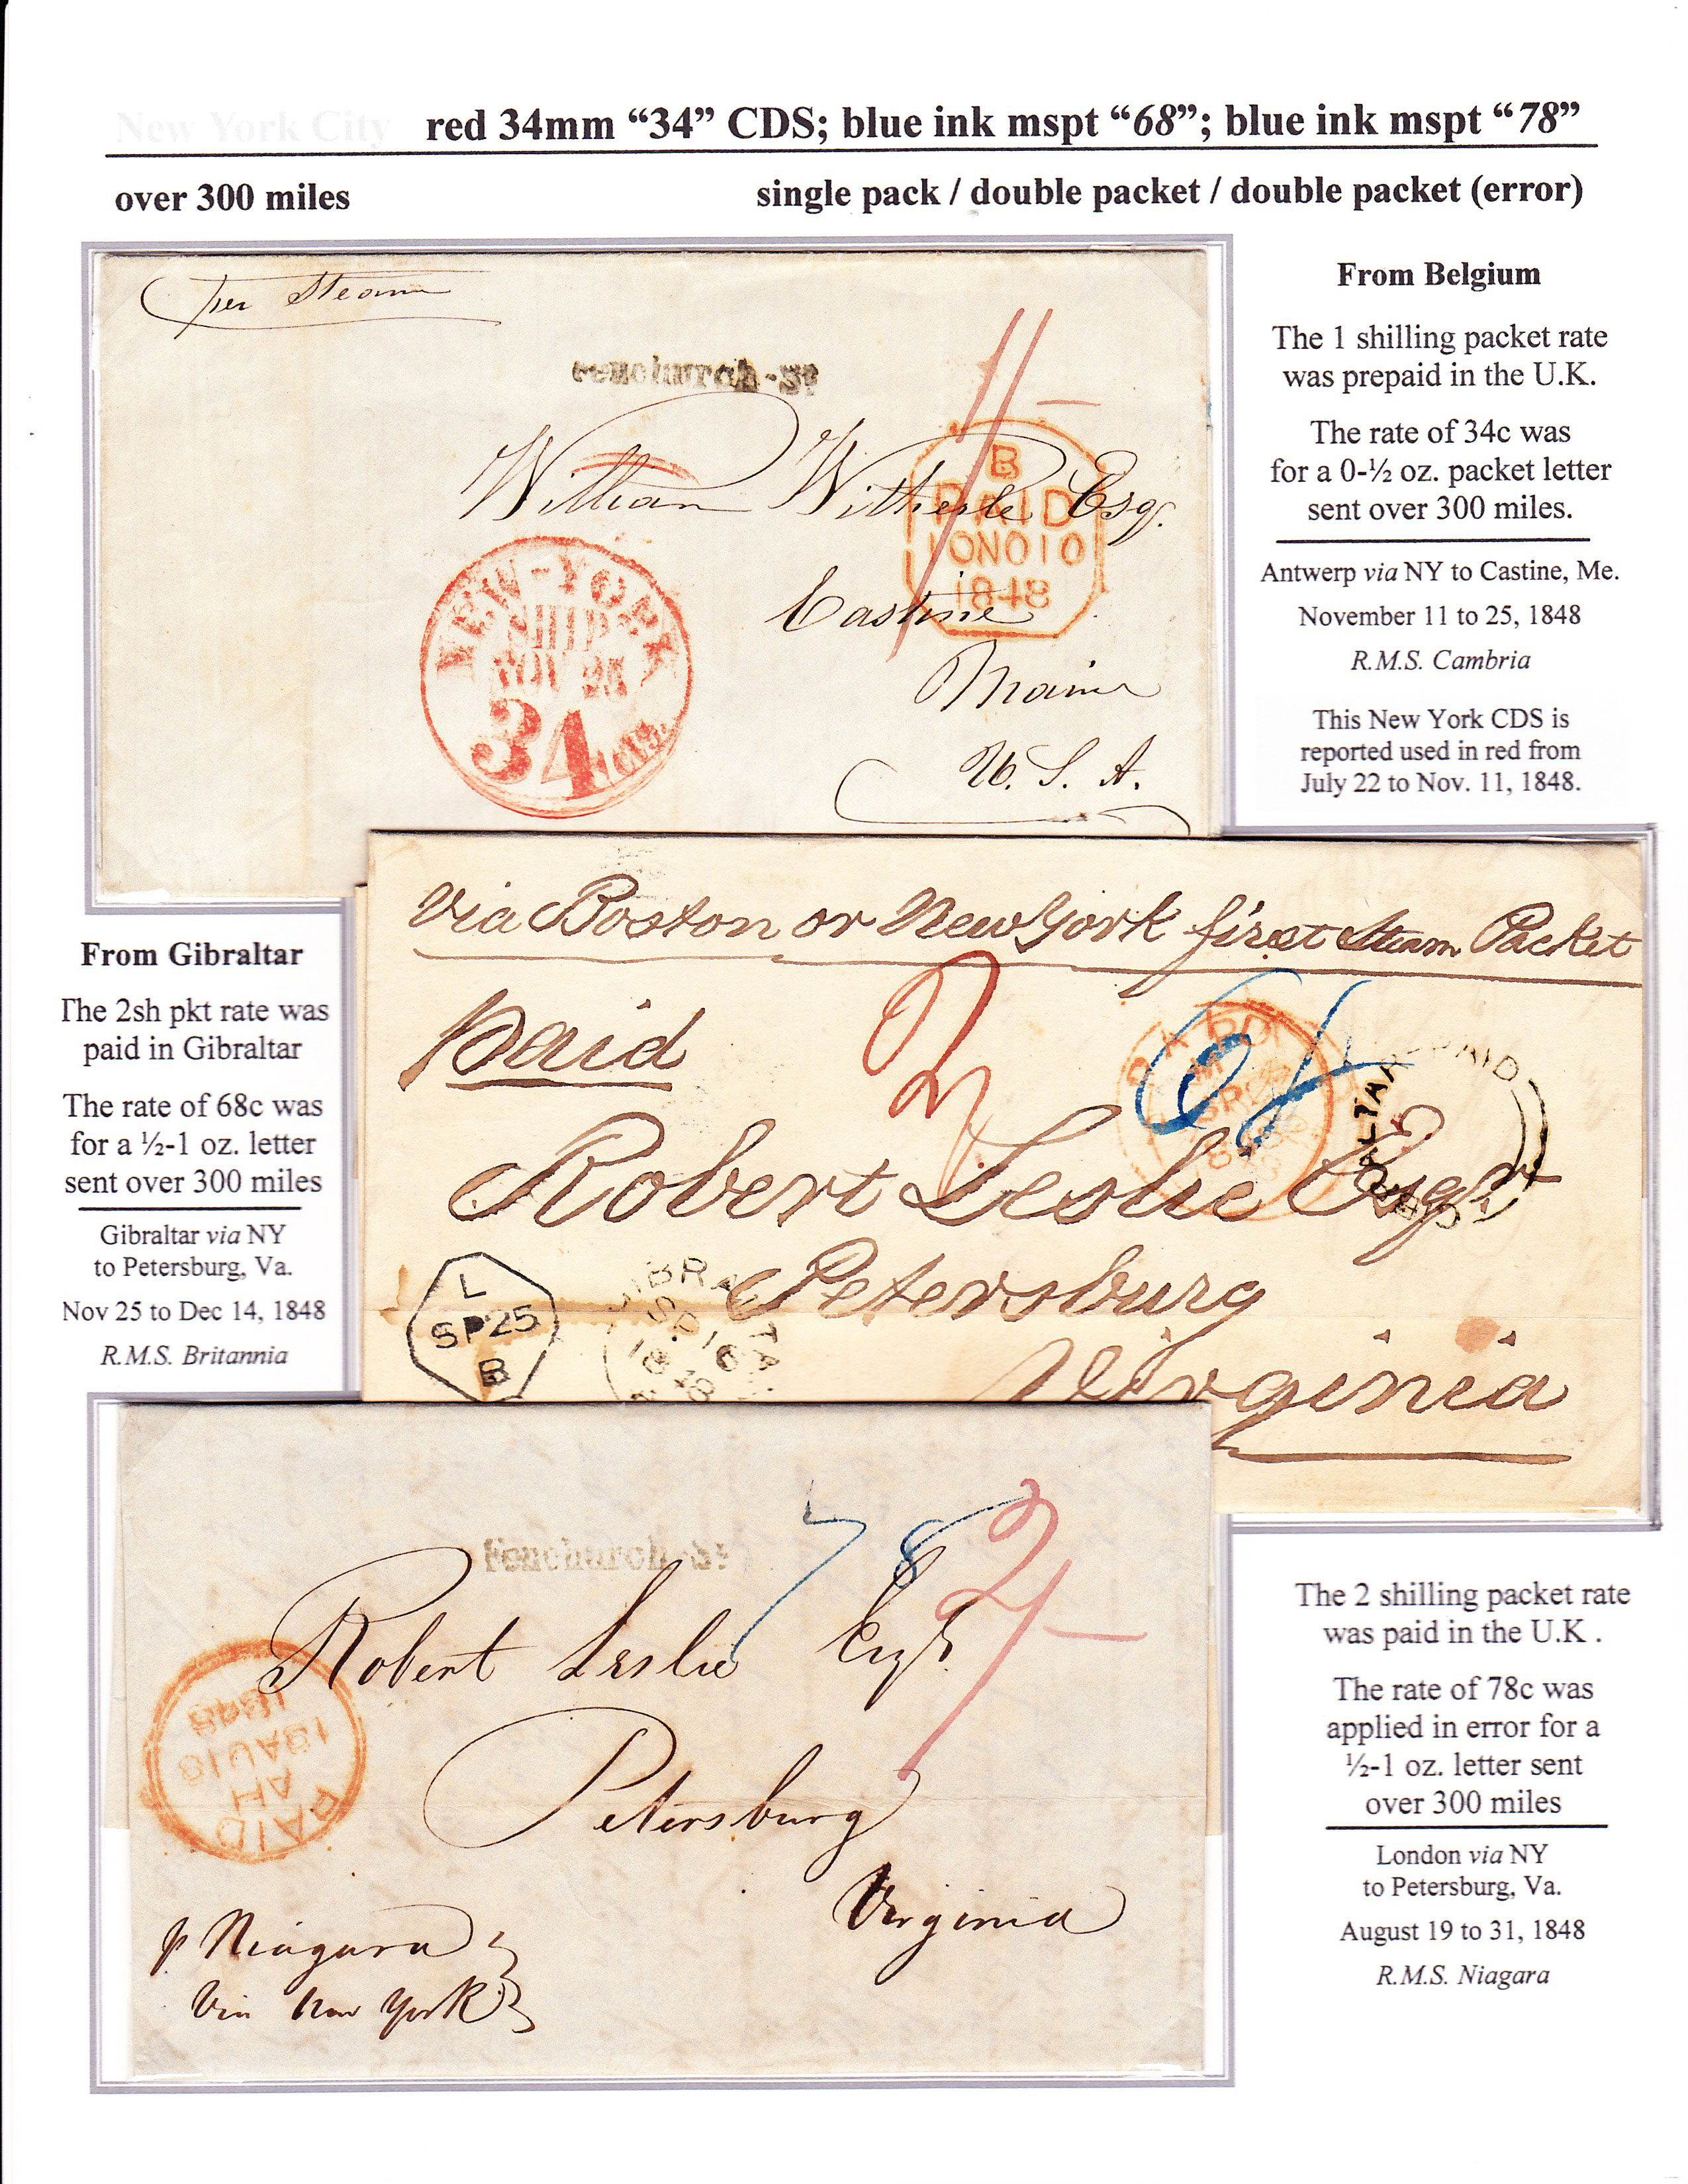 New York City red 34mm “34” CDS; blue ink mspt “68”; blue ink mspt “78”
over 300 miles single pack / double packet / double packet (error)
per Steam
Fenchurch-St
1/-
William Witherle Esqr.
Castine
Maine
U. S. A.
B
PAID
10NO10
1848
NEW-YORK
SHIP
NOV 25
34 cts.
From Belgium
The 1 shilling packet rate
was prepaid in the U.K.
The rate of 34c was
for a 0-½ oz. packet letter
sent over 300 miles.
Antwerp via NY to Castine, Me.
November 11 to 25, 1848
R.M.S. Cambria
This New York CDS is
reported used in red from
July 22 to Nov. 11, 1848.
From Gibraltar
The 2sh pkt rate was
paid in Gibraltar
The rate of 68c was
for a ½-1 oz. letter
sent over 300 miles
Gibraltar via NY
to Petersburg, Va.
Nov 25 to Dec 14, 1848
R.M.S. Britannia
Via Boston or New York first Steam Packet
paid
68
PAID
Robert Leslie Esqr
Petersburg
Virginia
L
SP25
B
GIBRALTAR
SP16
1848
Fenchurch-St
78
2/-
Robert Leslie Esqr.
Petersburg
Virginia
PAID
HA
19AU19
1848
p Niagara
Via New York
The 2 shilling packet rate
was paid in the U.K .
The rate of 78c was
applied in error for a
½-1 oz. letter sent
over 300 miles
London via NY
to Petersburg, Va.
August 19 to 31, 1848
R.M.S. Niagara